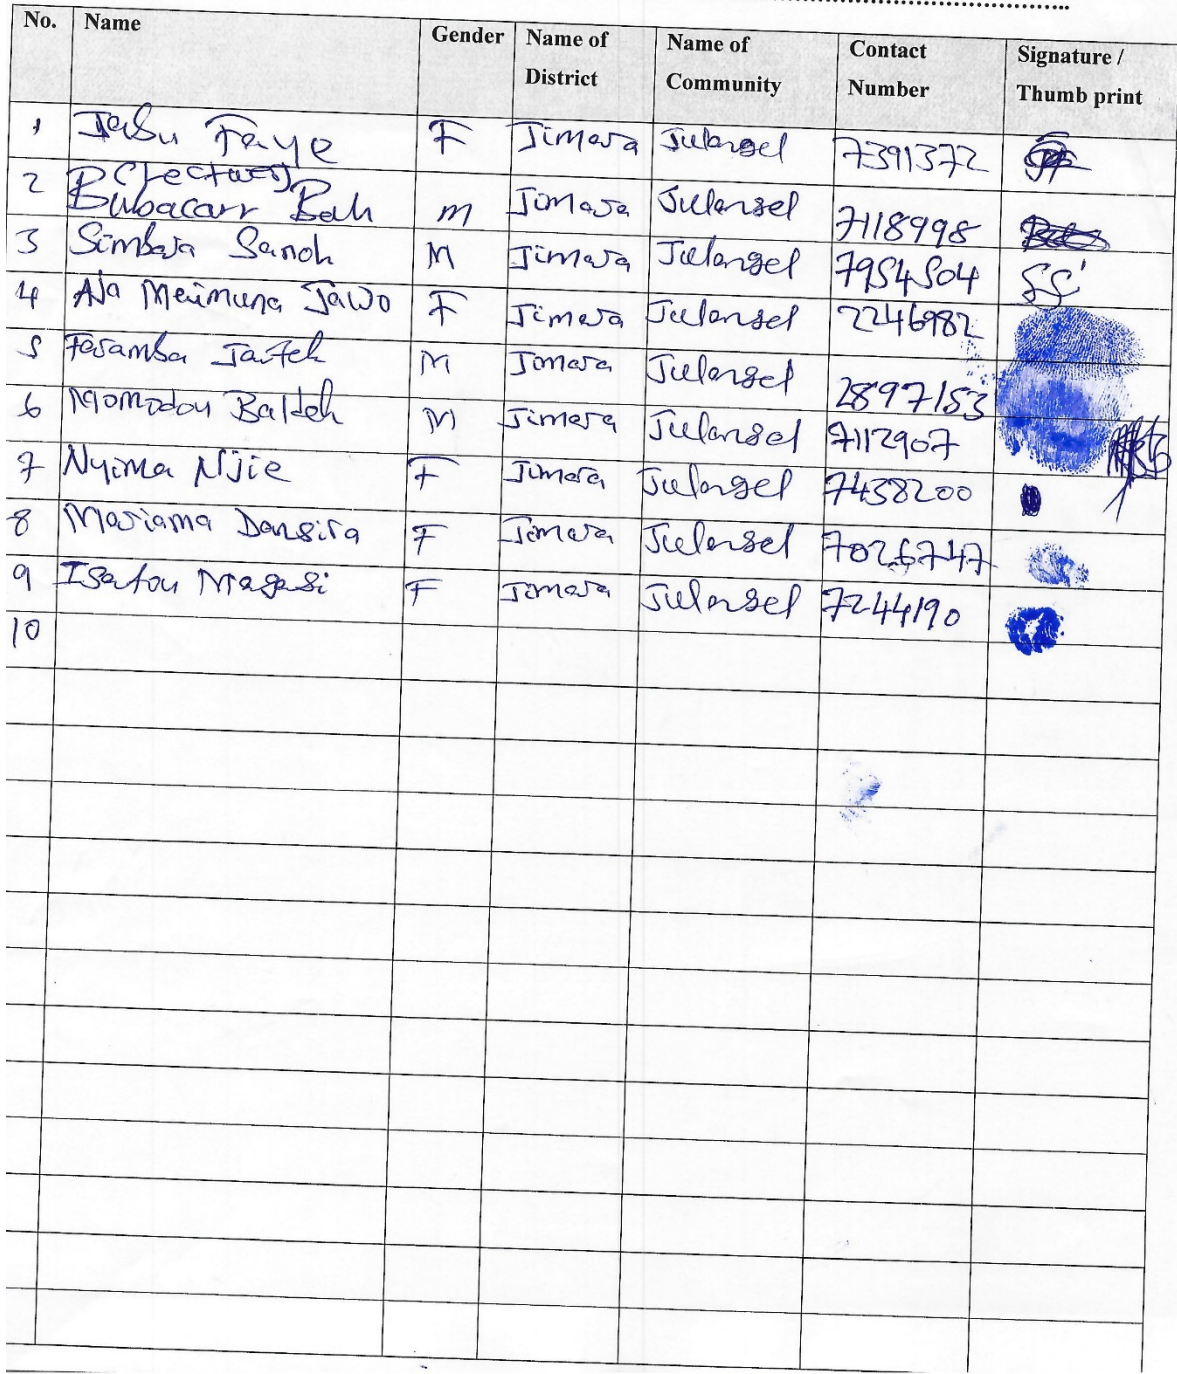 No. Name Gender Name of District Name of Community Contact Number Signature / Thumb print
1 Jabu Faye F Jimara Julangel 7391372
2 Bubacarr Bah M Jimara Julangel 7118998
3 Simbara Sanoh M Jimara Julangel 7954504 SS
4 Aja Meimuna Jawo F Jimara Julangel 2246982
5 Faramba Jaiteh M Jimara Julangel 2897153
6 Momodou Baldeh M Jimara Julangel 7112907
7 Nyima Njie F Jimara Julangel 7438200
8 Mariama Dansira F Jimara Julangel 7026747
9 Isatou Magasi F Jimara Julangel 7244190
10